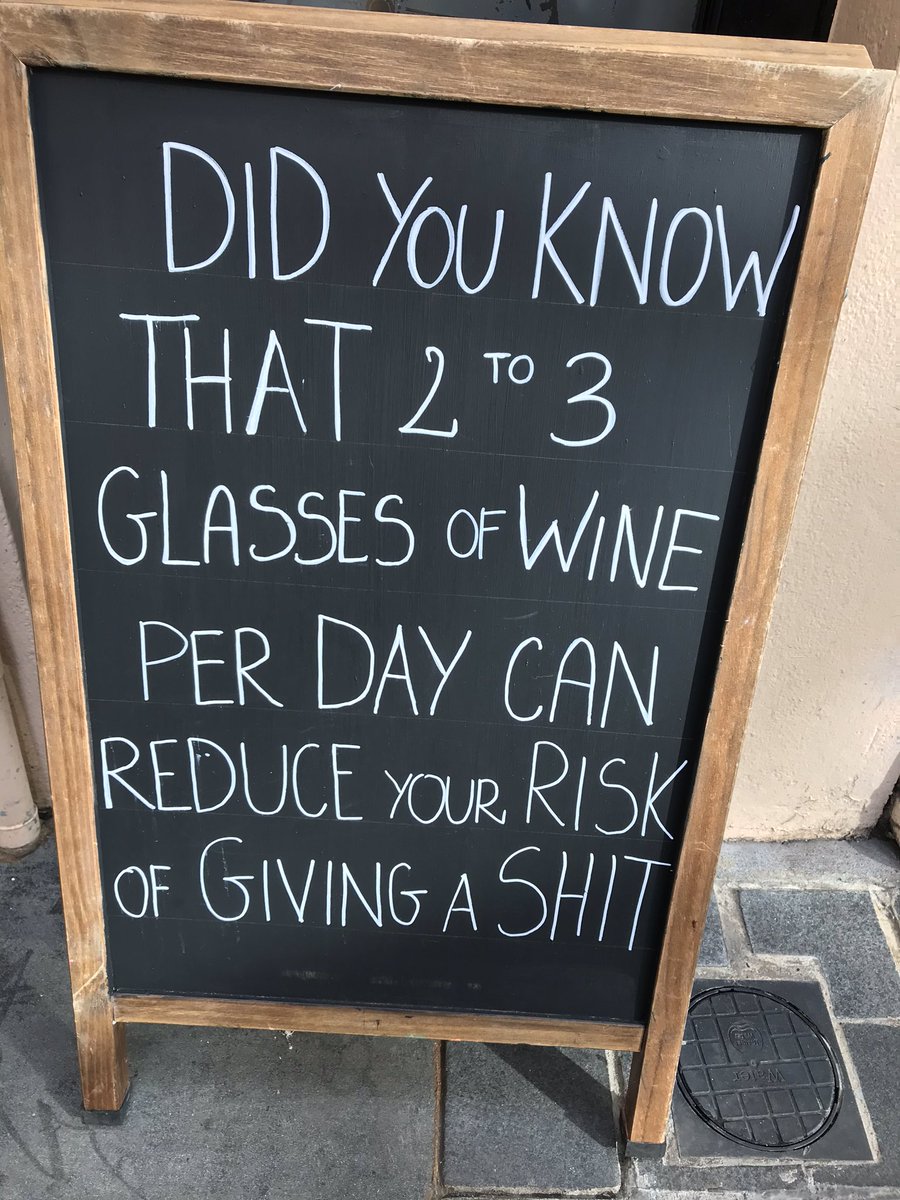 DID YOU KNOW
THAT 2 TO 3
GLASSES OF WINE
PER DAY CAN
REDUCE YOUR RISK
OF GIVING A SHIT
Water